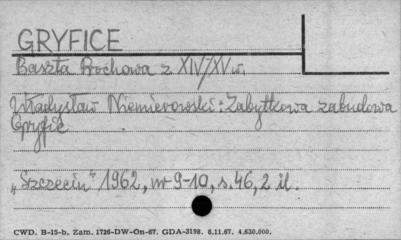 GRYFICE
Baszta Prochowa z XIV/XV w.
Władysław Niemierowski: Zabytkowa zabudowa
Gryfic.
„Szczecin" 1962, nr 9-10, s. 46, 2 il.
CWD. B-15-b. Zam. 1726-DW-On-67. GDA-3198. 6.11.67. 4.630.000.